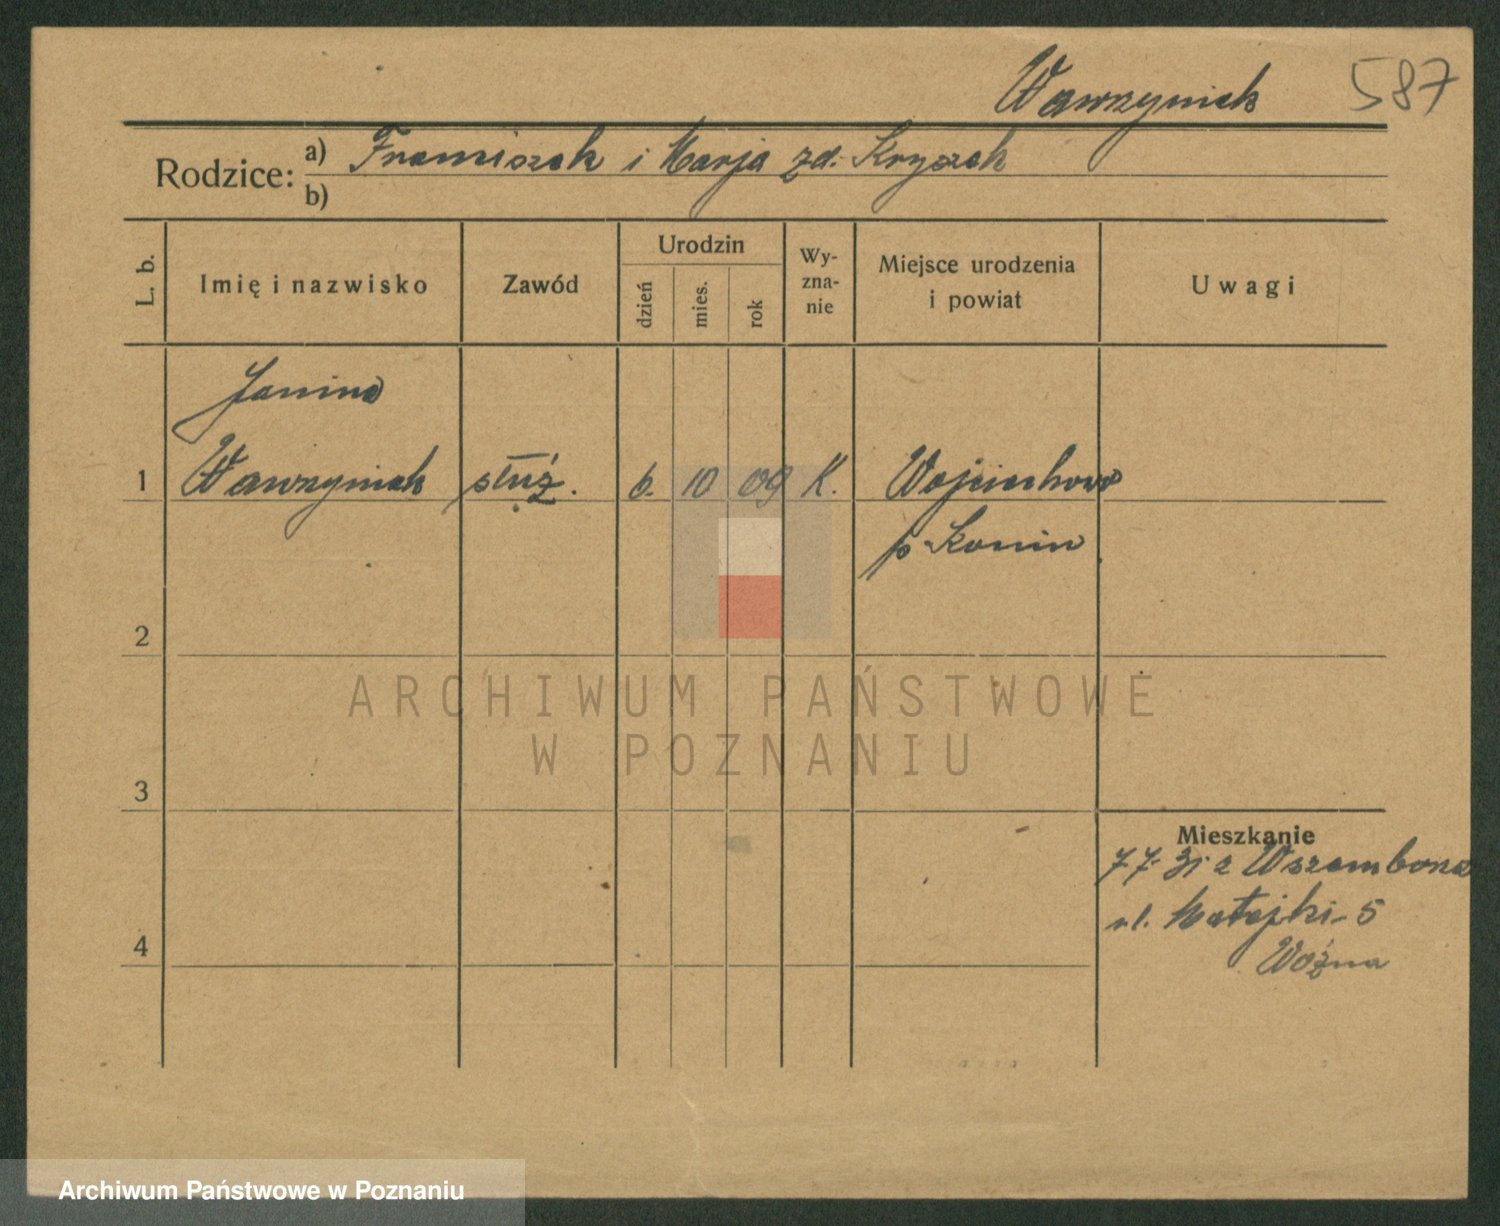 Wawrzyniak 587
Rodzice: a) Franciszek i Marja zd. Kryszak
b)
L. b. Imię i nazwisko Zawód Urodzin dzień mies. rok Wy-zna-nie Miejsce urodzenia i powiat Uwagi
Janina
1 Wawrzyniak służ. 6. 10 09 K. Wojciechowo
p. Konin
2
ARCHIWUM PAŃSTWOWE
W POZNANIU
3
Mieszkanie
7.7.31 z
ul. Matejki 5
4 Woźna
Archiwum Państwowe w Poznaniu